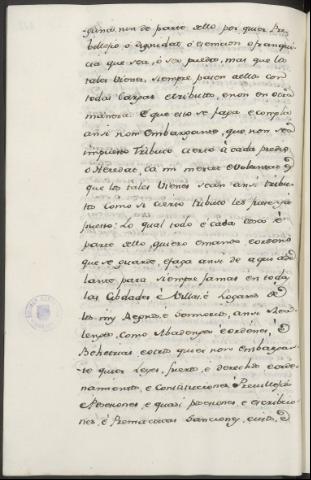 guna, nin de parte dello por quier Pre-
billejo o dignidat, ó exencion o franqui-
cia que sea, ó ser pueda, mas que los
tales Vienes, siempre pasen a ellos con
todas Cargas etributto, enon en otra
manera: E que esto se faga e compla
ansi nom embargante, que non sea
impuesto Tributo cierto à cada predio
o Heredat, ca mi merced e Voluntad es
que los tales Vienes sean ansi tribu-
tos como si cierto tributo les fuese ya
puesto: Lo qual todo e cada cosa é
parte dello, quiero emando eordeno
que se guarde, efaga ansi de aqui ade-
lante para siempre jamas en todas
las Cibdades e Villas é Logares de
los mis Regnos, e Sennorios, ansi Rea-
lengos, como Abadengos e ordenes, e
Behetrias, e otros quier non embargan-
te quier Leyes, fueros, e derechos e orde-
namientos, e Constituciones é Previllejos
e Posesiones, e quasi posesiones, e escribcio-
nes, é Premáticas Sanciones, e usos, e